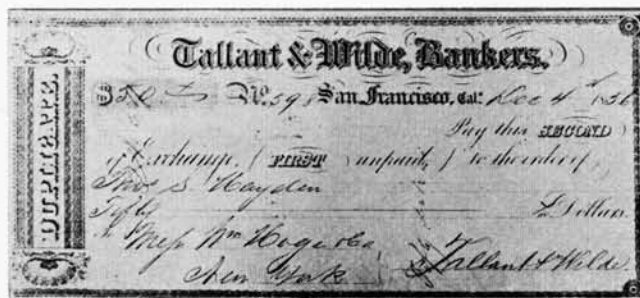 DUPLICATE
Tallant & Wilde, Bankers.
$50 No. 598 San Francisco, Cal: Dec 4th 1856
Pay this SECOND
of Exchange, (FIRST unpaid,) to the order of
Thos S Hayden
Fifty Dollars.
To Mess Wm Hoge & Co
New York Tallant & Wilde